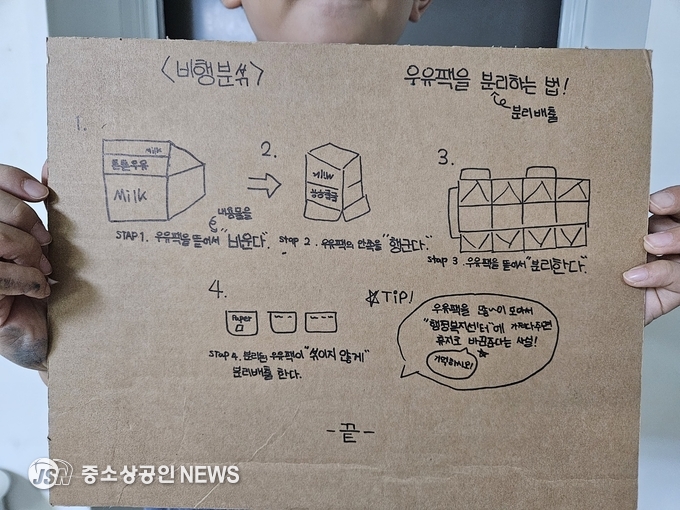 <비행분섞>
우유팩을 분리하는 법!
분리배출
1.
Milk
튼튼우유
Milk
내용물을
STAP 1. 우유팩을 뜯어서 "비운다".
2.
Milk
stap 2. 우유팩의 안쪽을 "헹군다".
3.
stap 3. 우유팩을 뜯어서 "분리한다".
4.
Paper
STAP 4. 분리된 우유팩이 "섞이지 않게"
분리배출 한다.
☆TiP!
우유팩을 많~이 모아서
"행정복지센터"에 가져다주면
휴지로 바꿔준다는 사실!
기억하시오!
-끝-
JSN 중소상공인NEWS